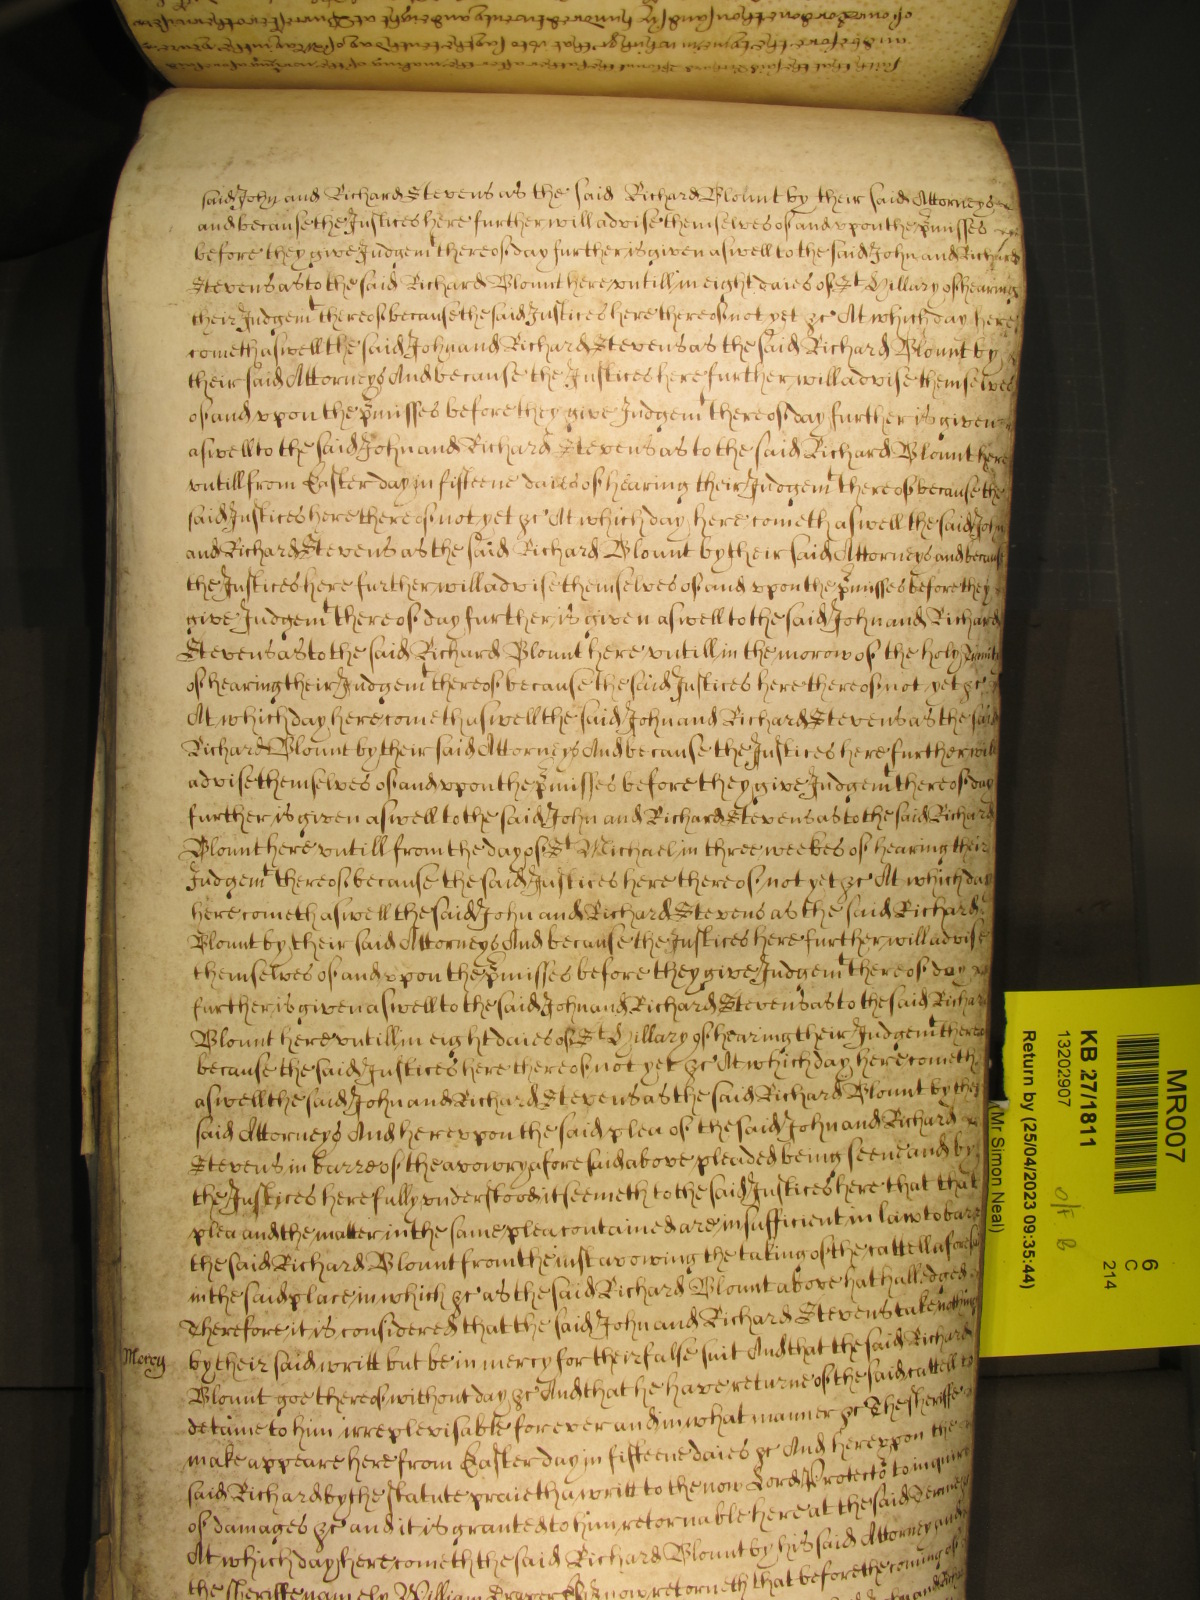 said John and Richard Stevens as the said Richard Blount by their said Attorneys
and because the Justices here further will advise themselves of and vpon the p̄misses
before they give Judgemt thereof day further is given aswell to the said John and Richard
Stevens as to the said Richard Blount here vntill in eight daies of St Hillary of hearing
their Judgemt thereof because the said Justices here thereof not yet &c At which day here
cometh aswell the said John and Richard Stevens as the said Richard Blount by
their said Attorneys And because the Justices here further will advise themselves
of and vpon the p̄misses before they give Judgemt thereof day further is given
aswell to the said John and Richard Stevens as to the said Richard Blount here
vntill from Easter day in fifteene daies of hearing their Judgemt thereof because the
said Justices here thereof not yet &c At which day here cometh aswell the said John
and Richard Stevens as the said Richard Blount by their said Attorneys and because
the Justices here further will advise themselves of and vpon the p̄misses before they
give Judgemt thereof day further is given aswell to the said John and Richard
Stevens as to the said Richard Blount here vntill in the morow of the holy Trinity
of hearing their Judgemt thereof because the said Justices here thereof not yet &c
At which day here cometh aswell the said John and Richard Stevens as the said
Richard Blount by their said Attorneys And because the Justices here further will
advise themselves of and vpon the p̄misses before they give Judgemt thereof day
further is given aswell to the said John and Richard Stevens as to the said Richard
Blount here vntill from the day of St Michael in three weekes of hearing their
Judgemt thereof because the said Justices here thereof not yet &c At which day
here cometh aswell the said John and Richard Stevens as the said Richard
Blount by their said Attorneys And because the Justices here further will advise
themselves of and vpon the p̄misses before they give Judgemt thereof day
further is given aswell to the said John and Richard Stevens as to the said Richard
Blount here vntill in eight daies of St Hillary of hearing their Judgemt thereof
because the said Justices here thereof not yet &c At which day here cometh
aswell the said John and Richard Stevens as the said Richard Blount by their
said Attorneys And herevpon the said plea of the said John and Richard
Stevens in barre of the avowry aforesaid above pleaded being seene and by
the Justices here fully vnderstood it seemeth to the said Justices here that that
plea and the matter in the same plea contained are insufficient in law to barre
the said Richard Blount from the iust avowing the taking of the cattell aforesaid
in the said place in which &c as the said Richard Blount above hath alledged
Therefore it is considered that the said John and Richard Stevens take nothing
Mercy
by their said writt but be in mercy for their false suit And that the said Richard
Blount goe thereof without day &c And that he have returne of the said cattell to
detaine to him irreplevisable for ever and in what manner &c The sheriffe
make appeare here from Easter day in fifteene daies &c And herevpon the
said Richard by the statute praieth a writt to the now Lord Protector to inquire
of damages &c and it is granted to him retornable here at the said Terme
At which day here cometh the said Richard Blount by his said Attorney and
the sheriffe namely William Draper Esqr now retorneth that before the coming of
MR007
6
C
214
KB 27/1811
13202907
Return by (25/04/2023 09:35:44)
(Mr Simon Neal)